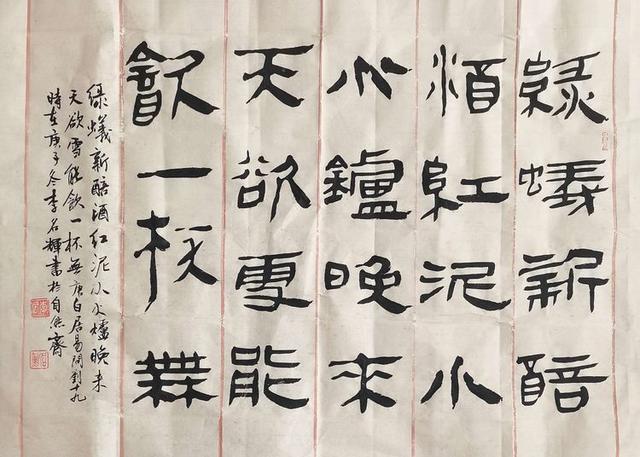 綠蟻新醅
酒紅泥小
火鑪晚來
天欲雪能
飲一杯無
綠蟻新醅酒红泥小火爐晚来
天欲雪能飲一杯無唐白居易问劉十九
時在庚子冬李名輝書於自齋